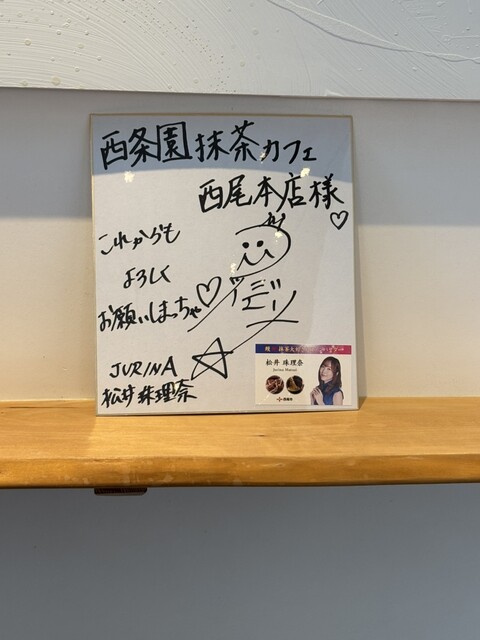 西条園抹茶カフェ
西尾本店様♡
これからも
よろしく
お願いしまっちゃ♡
JURINA
松井珠理奈
松井 珠理奈
Jurina Matsui
西尾市